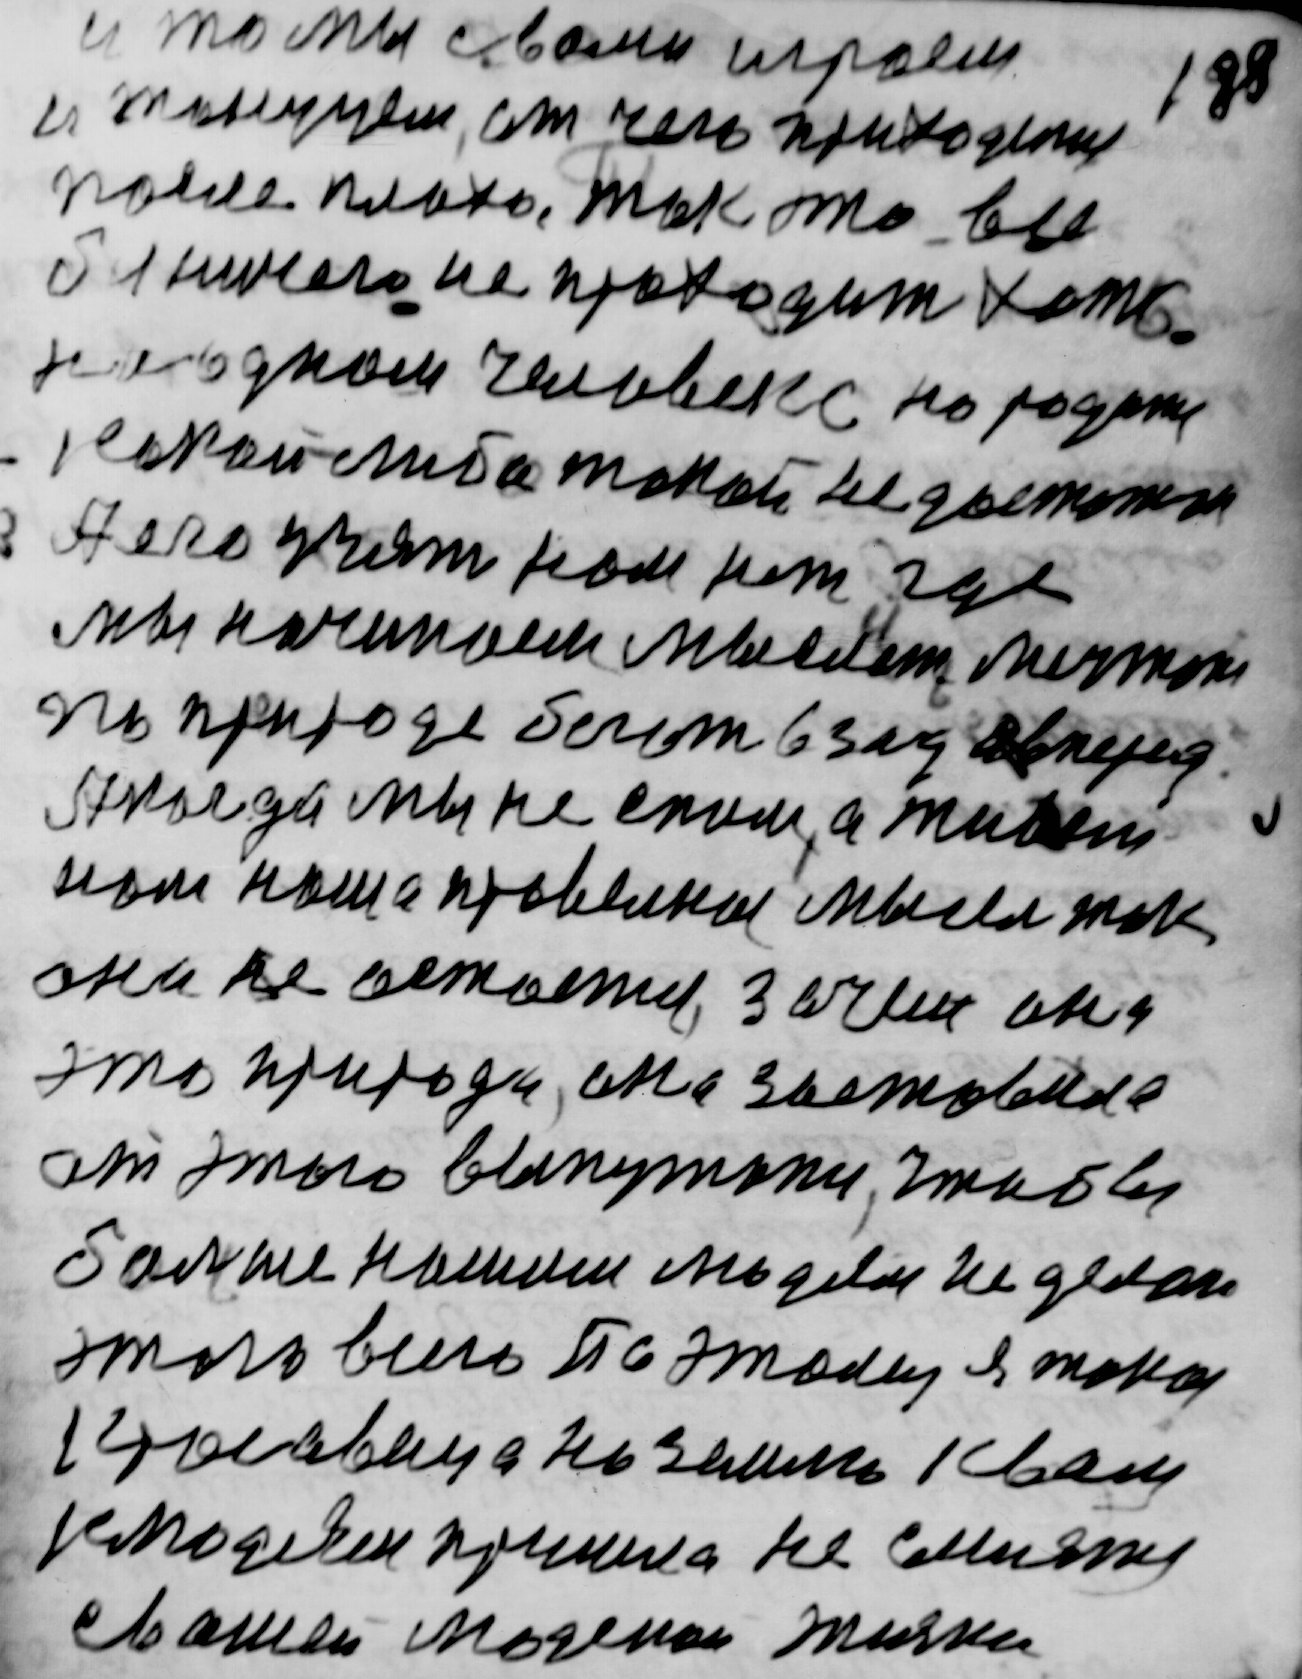 и то мы с вами играем 188
и танцуем, от чего приходится
после плохо. Так это все
бесничего не проходит хоть
на одном человеке народится
какой либо такой недостаток
Чего учит нам нет где
мы начинаем мыслить мечтом
по природе бегом взад вперед.
А когда мы не спим, а
нам наша правильная мысля так
они не остаются, зачем она
это природа, она заставила
от этого вспыхнуться, чтобы
больше нашим людям не делать
этого всего По этому я такая
Красавица на землю к вам
к людям пришла не смиятся
с вашей людской жизни